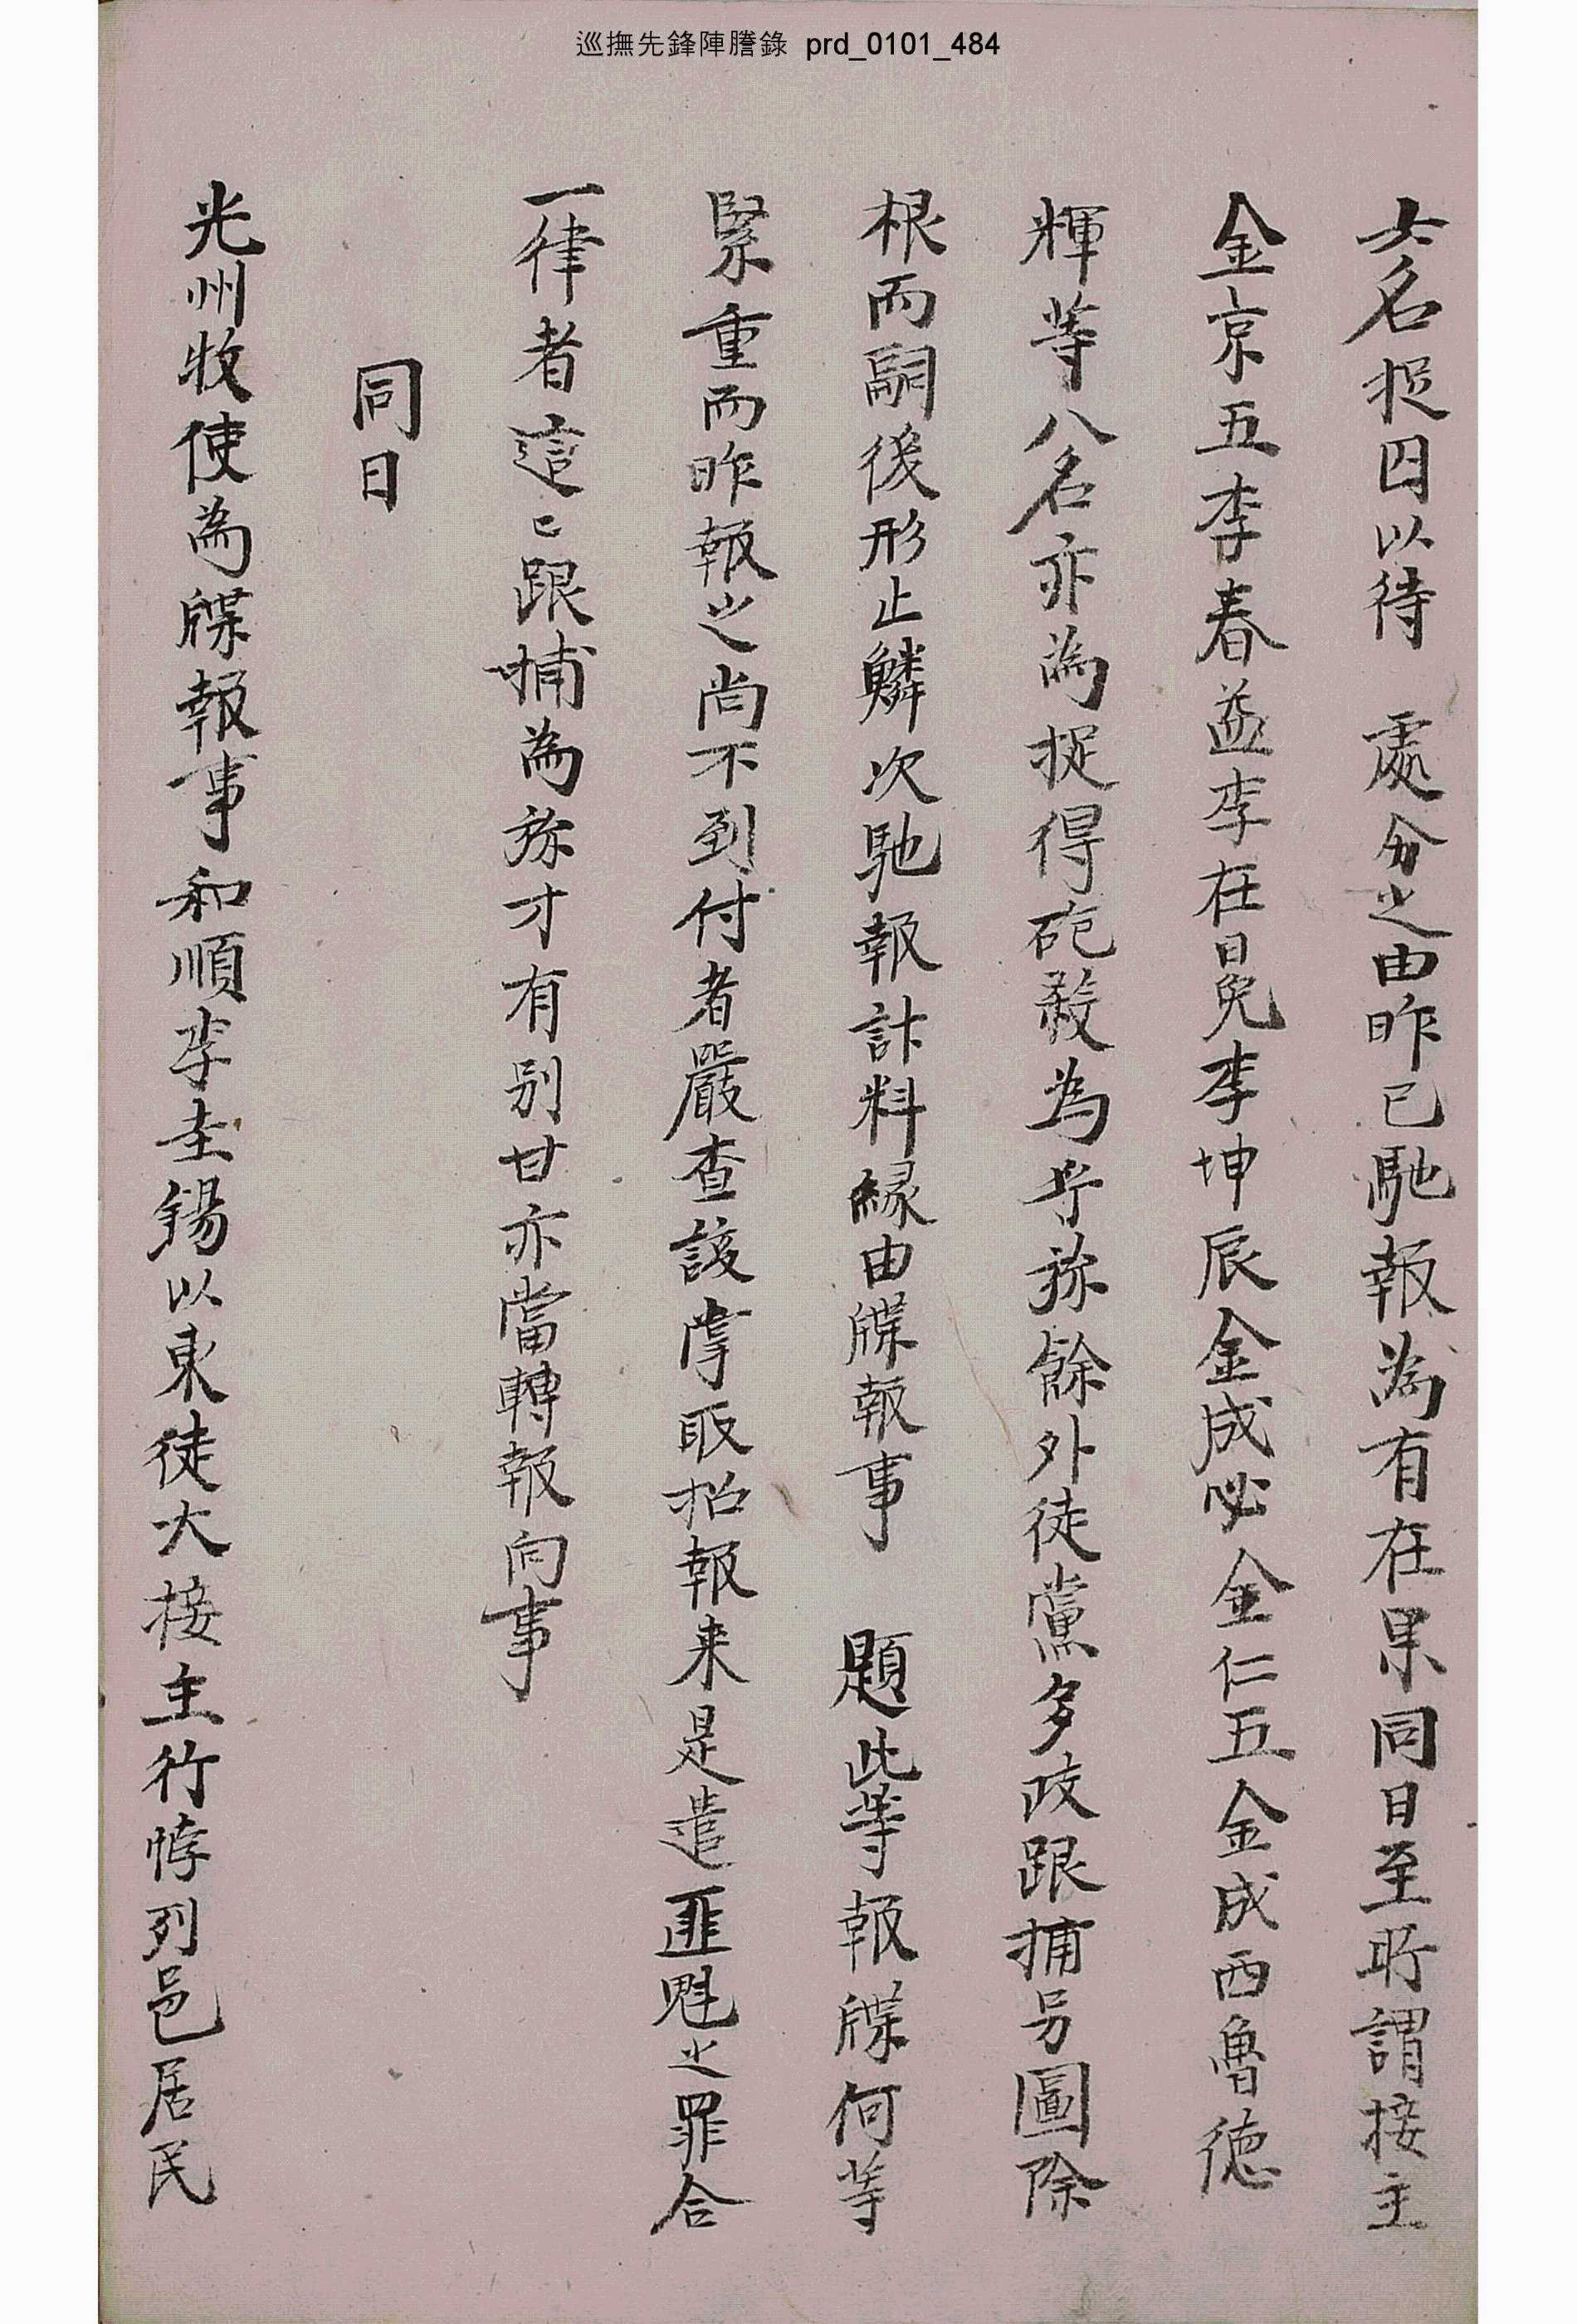 巡撫先鋒陣謄錄 prd_0101_484
六名捉囚以待 處分之由昨已馳報為有在果同日至所謂接主
金京五李春益李在冕李坤辰金成必金仁五金成西魯德
輝等八名亦為捉得砲殺為乎㫆餘外徒黨多歧跟捕另圖除
根而嗣後形止鱗次馳報計料緣由牒報事 題此等報牒何等
緊重而昨報之尚不到付者嚴查該掌取招報來是遣匪魁之罪合
一律者這這跟捕為㫆才有別甘亦當轉報向事
同日
光州牧使為牒報事和順李圭錫以東徒大接主行悖列邑居民